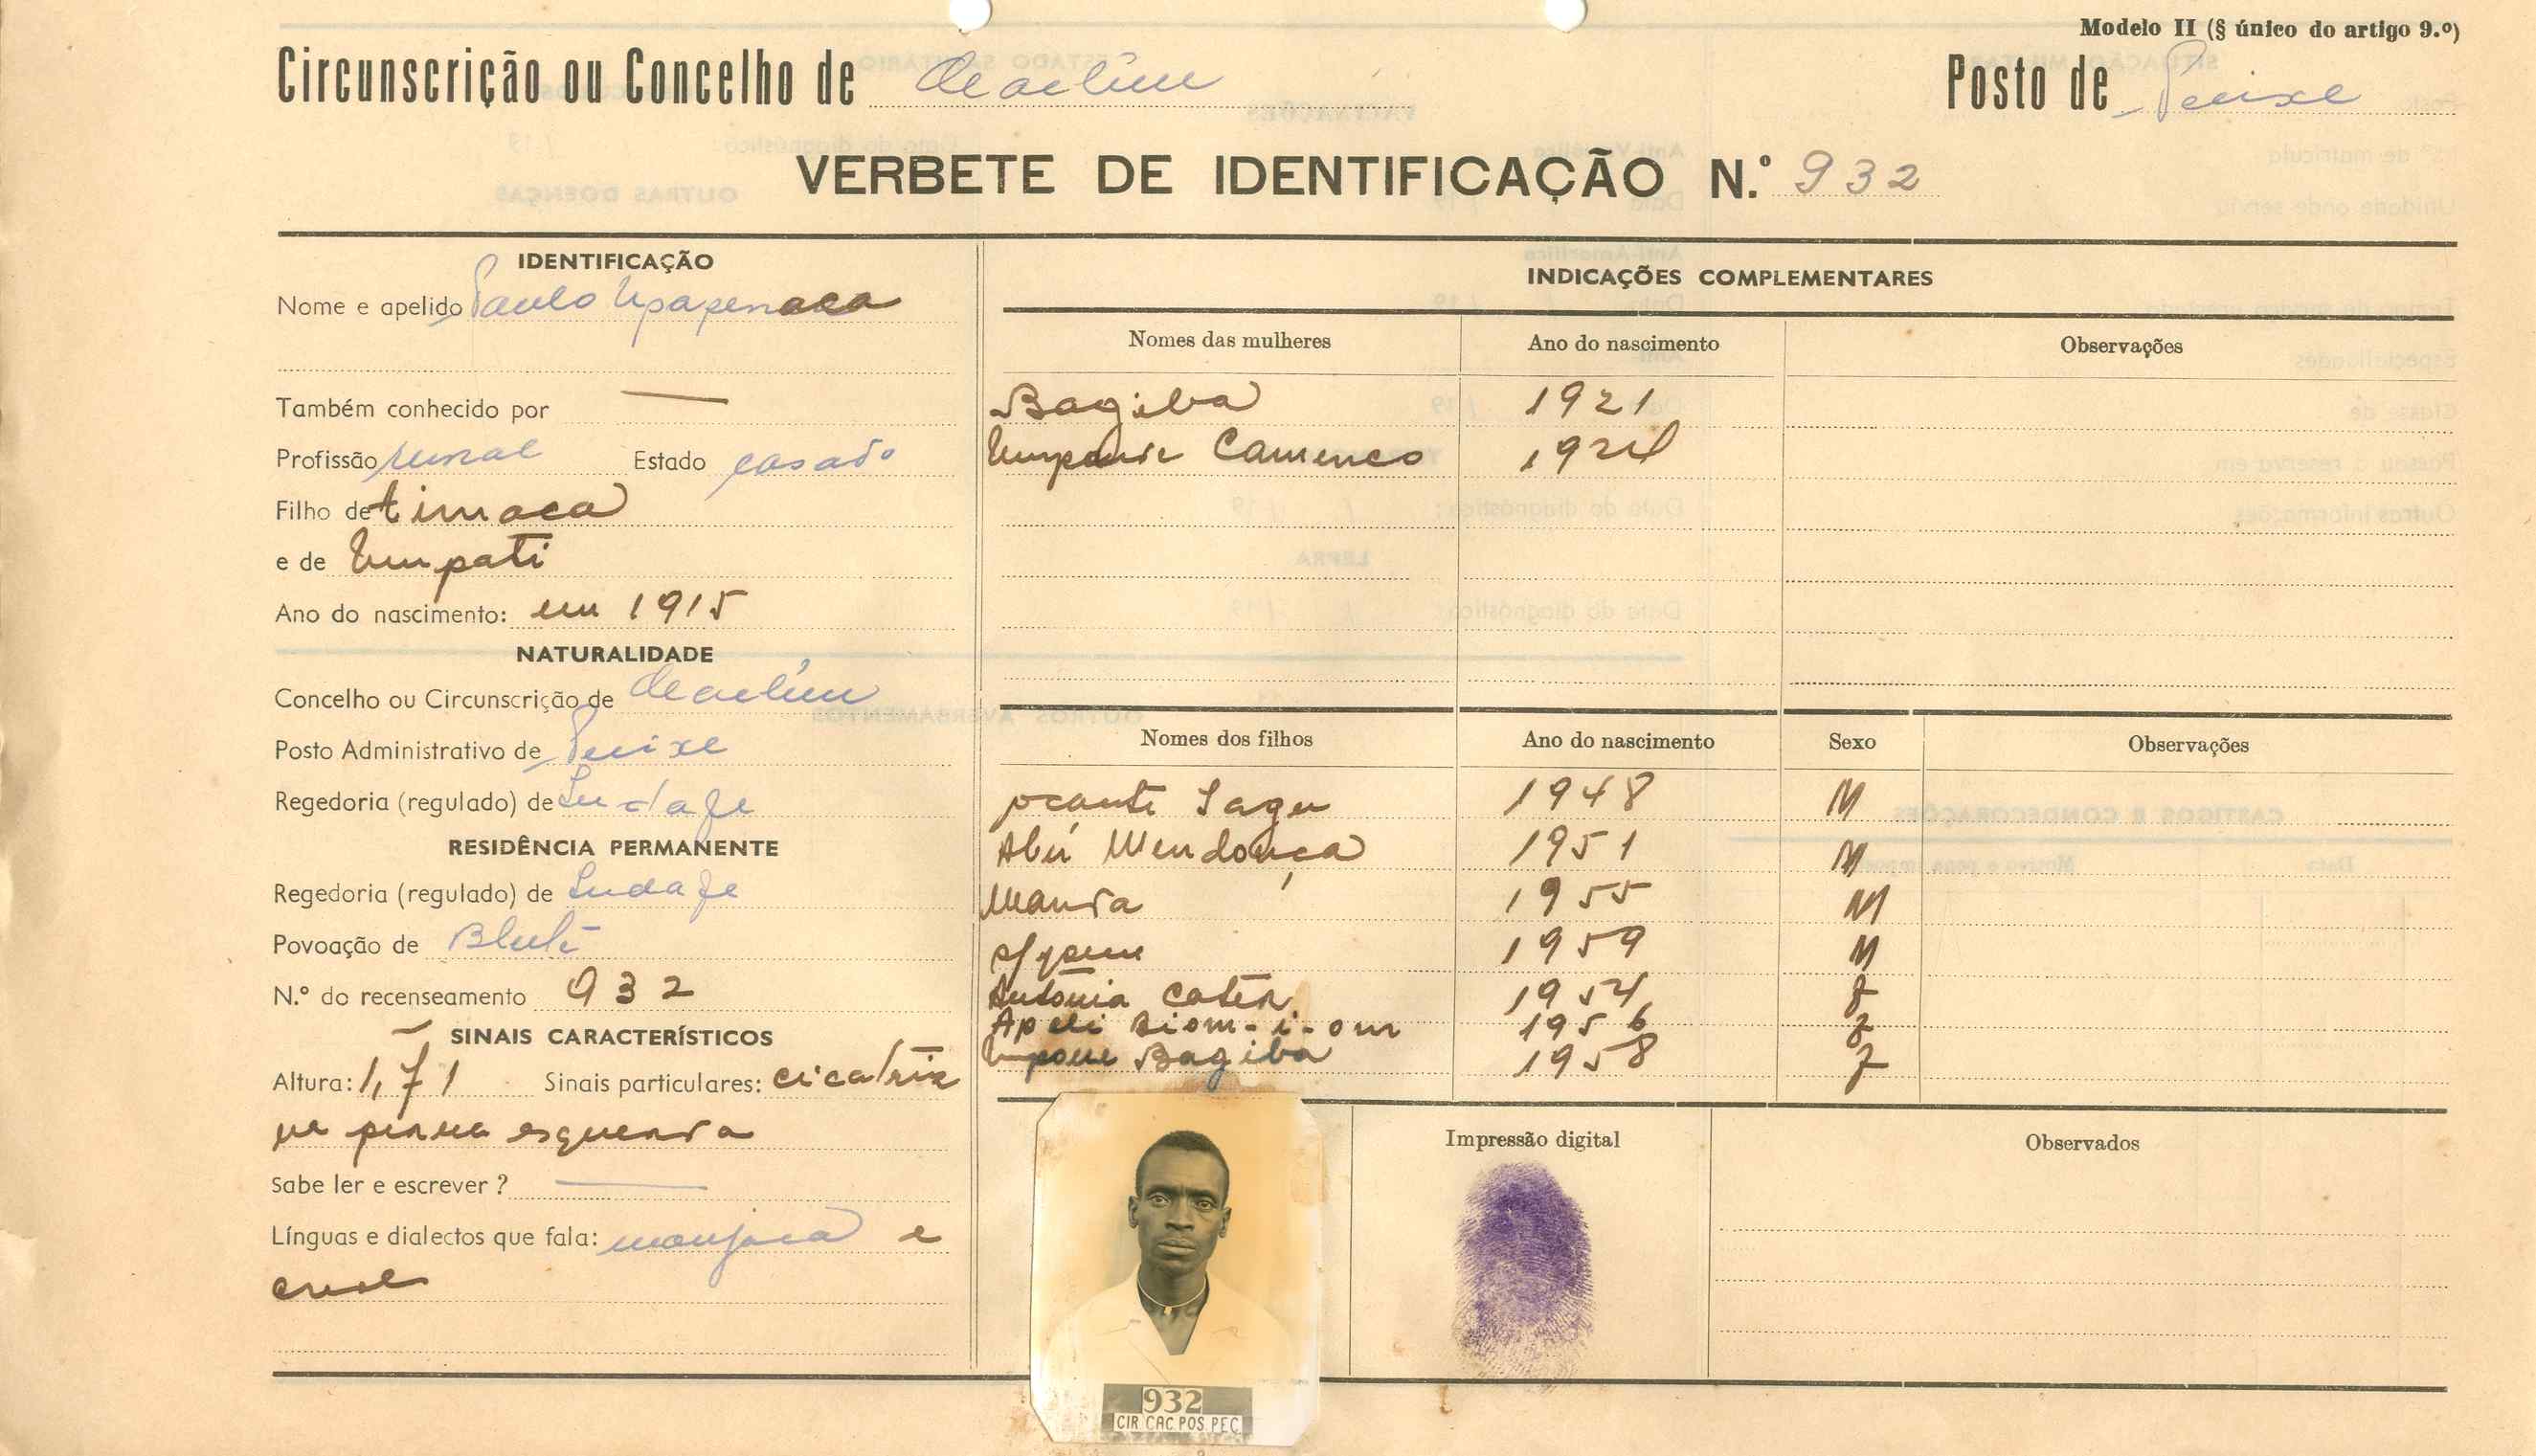 Modelo II (§ único do artigo 9.º)
Circunscrição ou Concelho de Cacheu
Posto de Pecixe
VERBETE DE IDENTIFICAÇÃO N.º 932
IDENTIFICAÇÃO
Nome e apelido Paulo
Também conhecido por —
Profissão rural Estado casado
Filho de timaca
e de Umpati
Ano do nascimento: em 1915
NATURALIDADE
Concelho ou Circunscrição de Cacheu
Posto Administrativo de Pecixe
Regedoria (regulado) de
RESIDÊNCIA PERMANENTE
Regedoria (regulado) de
Povoação de
N.º do recenseamento 932
SINAIS CARACTERÍSTICOS
Altura: 1,71 Sinais particulares: cicatriz
na perna esquerda
Sabe ler e escrever? —
Línguas e dialectos que fala: manjaca e
INDICAÇÕES COMPLEMENTARES
Nomes das mulheres Ano do nascimento Observações
Bagiba 1921
1924
Nomes dos filhos Ano do nascimento Sexo Observações
1948 M
Abú Mendonça 1951 M
1955 M
1959 M
Antónia 1954 f
1956 f
Bagiba 1958 f
Impressão digital
Observados
932
CIR CAC POS PEC